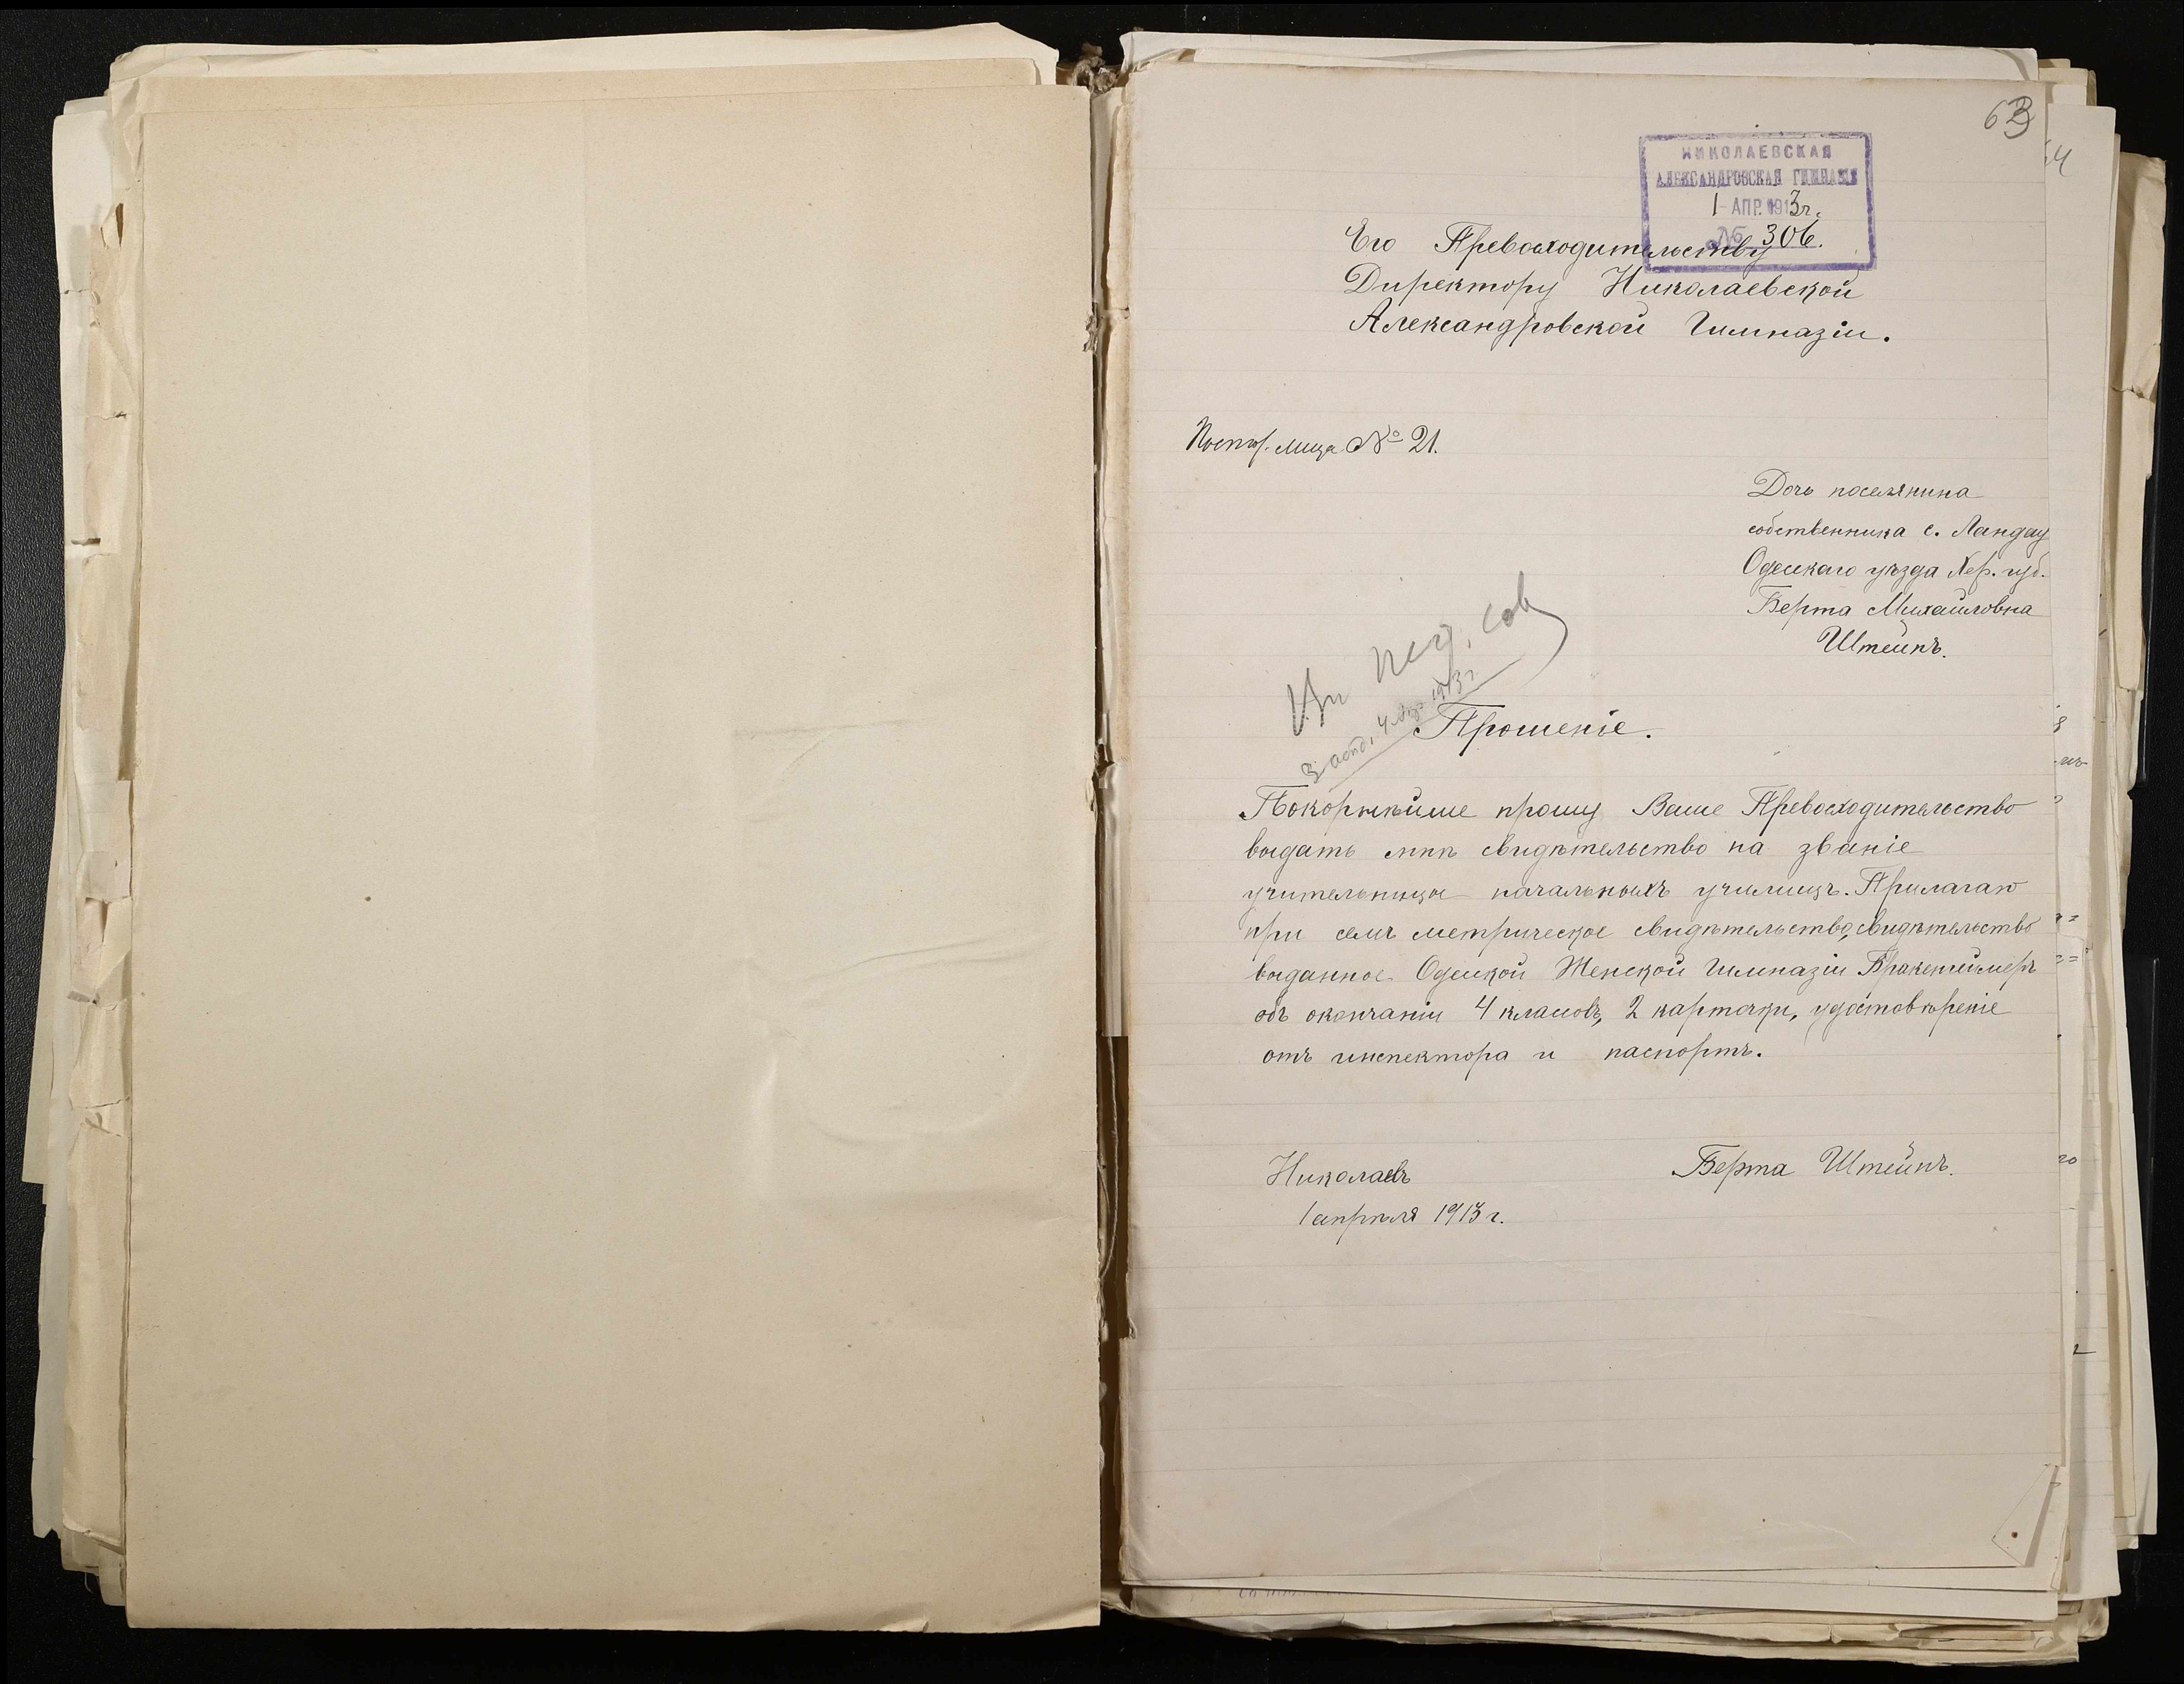 63
НИКОЛАЕВСКАЯ
АЛЕКСАНДРОВСКАЯ ГИМНАЗІЯ
1 АПР. 1913 г.
№ 306.
Его Превосходительству
Директору Николаевской
Александровской Гимназіи.
№ 21.
Дочь поселянина
собственника с. Ландау
Одесскаго уѣзда Хер. губ.
Берта Михайловна
Штейнъ.
Въ пед. сов
Прошеніе.
Покорнѣйше прошу Ваше Превосходительство
выдать мнѣ свидѣтельство на званіе
учительницы начальныхъ училищъ. Прилагаю
при семъ метрическое свидѣтельство, свидѣтельство
выданное Одесской Женской Гимназіи
объ окончаніи 4 классовъ, 2 карточки, удостовѣреніе
отъ инспектора и паспортъ.
Николаевъ
Берта Штейнъ.
1 апрѣля 1913 г.